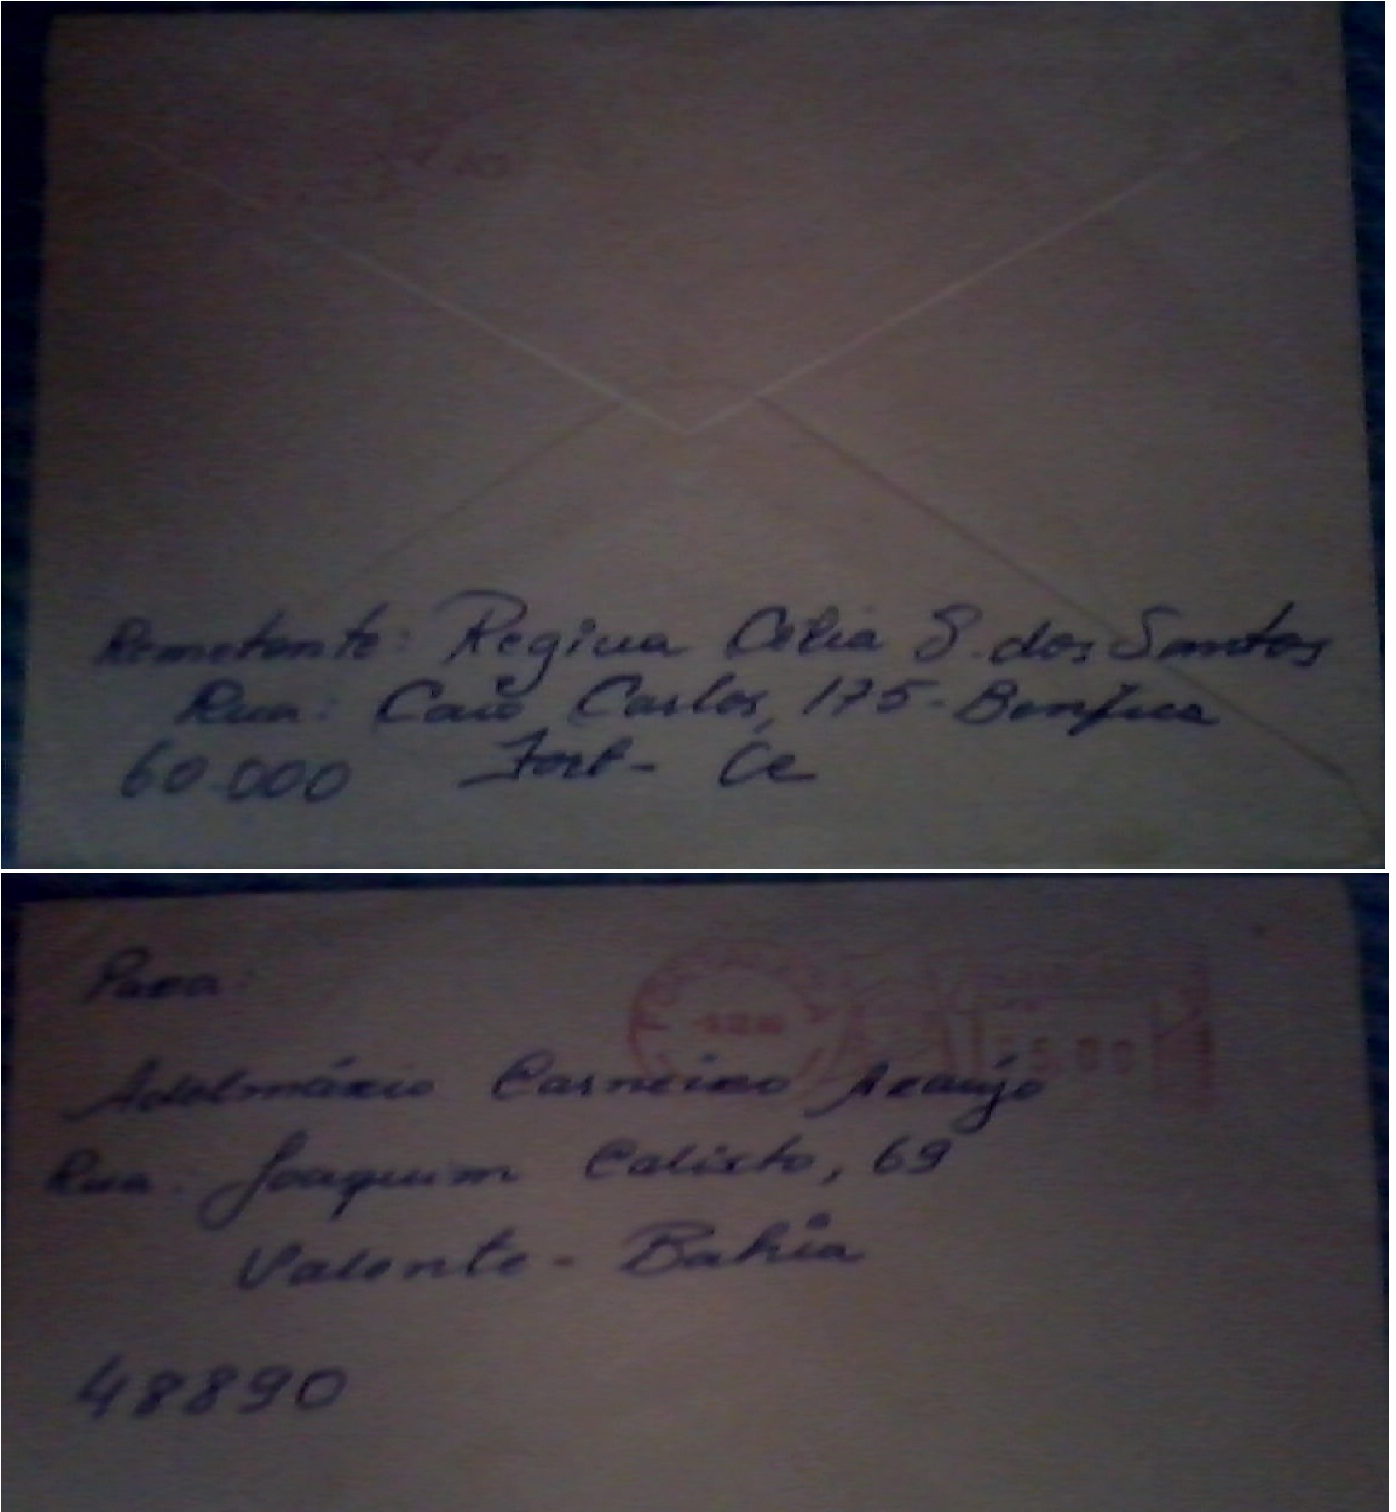 Remetente: Regina Célia S. dos Santos
Rua: Caio Carlos, 175 - Benfica
60.000 Fort - Ce
Para:
Adelmário Carneiro Araújo
Rua: Joaquim Calixto, 69
Valente - Bahia
48890